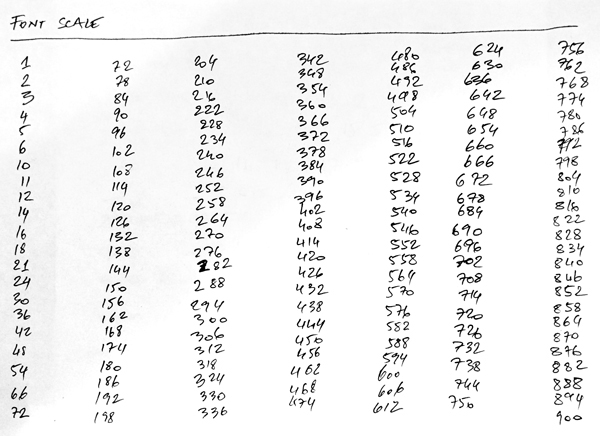 FONT SCALE
1
2
3
4
5
6
10
11
12
14
16
18
21
24
30
36
42
48
54
66
72
72
78
84
90
96
102
108
114
120
126
132
138
144
150
156
162
168
174
180
186
192
198
204
210
216
222
228
234
240
246
252
258
264
270
276
282
288
294
300
306
312
318
324
330
336
342
348
354
360
366
372
378
384
390
396
402
408
414
420
426
432
438
444
450
456
462
468
474
480
486
492
498
504
510
516
522
528
534
540
546
552
558
564
570
576
582
588
594
600
606
612
624
630
636
642
648
654
660
666
672
678
684
690
696
702
708
714
720
726
732
738
744
750
756
762
768
774
780
786
792
798
804
810
816
822
828
834
840
846
852
858
864
870
876
882
888
894
900